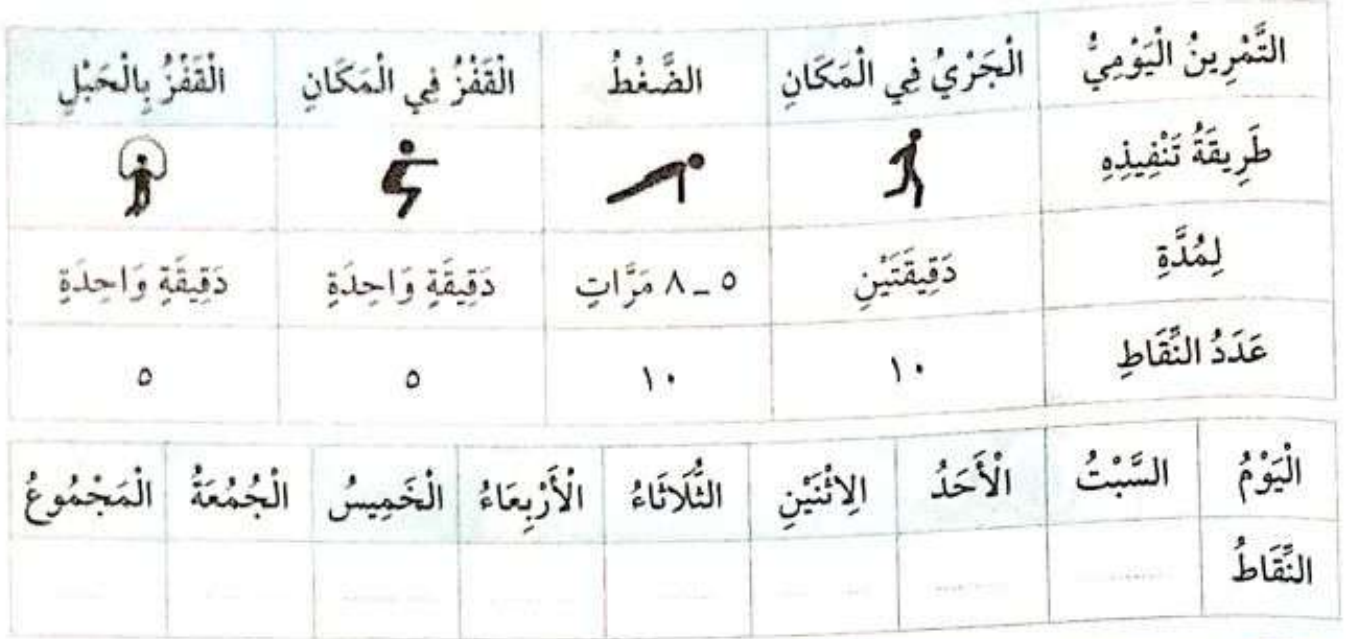 التَّمْرِينُ الْيَوْمِيُّ الْجَرْيُ فِي الْمَكَانِ الضَّغْطُ الْقَفْزُ فِي الْمَكَانِ الْقَفْزُ بِالْحَبْلِ
طَرِيقَةُ تَنْفِيذِهِ
لِمُدَّةِ دَقِيقَتَيْنِ ٥ - ٨ مَرَّاتٍ دَقِيقَةٍ وَاحِدَةٍ دَقِيقَةٍ وَاحِدَةٍ
عَدَدُ النِّقَاطِ ١٠ ١٠ ٥ ٥
الْيَوْمُ السَّبْتُ الْأَحَدُ الِاثْنَيْنِ الثُّلَاثَاءُ الْأَرْبِعَاءُ الْخَمِيسُ الْجُمُعَةُ الْمَجْمُوعُ
النِّقَاطُ